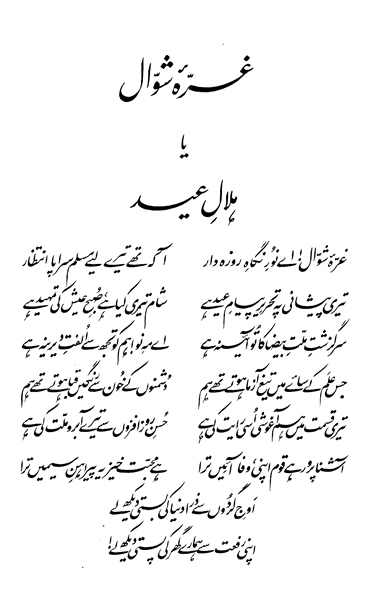 غرّۂ شوّال
یا
ہلالِ عید
غرّۂ شوّال! اے نورِ نگاہِ روزہ دار آ کہ تھے تیرے لیے مسلم سراپا انتظار
تیری پیشانی پہ تحریرِ پیامِ عید ہے شام تیری کیا ہے، صُبحِ عیش کی تمہید ہے
سرگزشتِ ملّتِ بیضا کا تُو آئینہ ہے اے مہِ نو! ہم کو تجھ سے اُلفتِ دیرینہ ہے
جس علَم کے سائے میں تیغ آزما ہوتے تھے ہم دُشمنوں کے خُون سے رنگیں قبا ہوتے تھے ہم
تیری قسمت میں ہم آغوشی اُسی رایت کی ہے حُسنِ روز افزوں سے تیرے آبرو ملّت کی ہے
آشنا پرور ہے قوم اپنی، وفا آئیں ترا ہے محبّت خیز یہ پیراہنِ سیمیں ترا
اَوجِ گردُوں سے ذرا دنیا کی بستی دیکھ لے
اپنی رفعت سے ہمارے گھر کی پستی دیکھ لے!